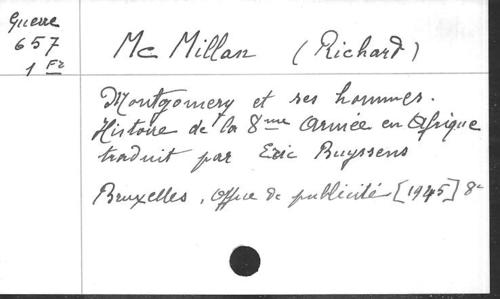 Guerre
657
1 Fr
Mc Millan (Richard)
Montgomery et ses hommes.
Histoire de la 8me Armée en Afrique
traduit par Eric Buyssens
Bruxelles, Office de publicité [1945] 8°